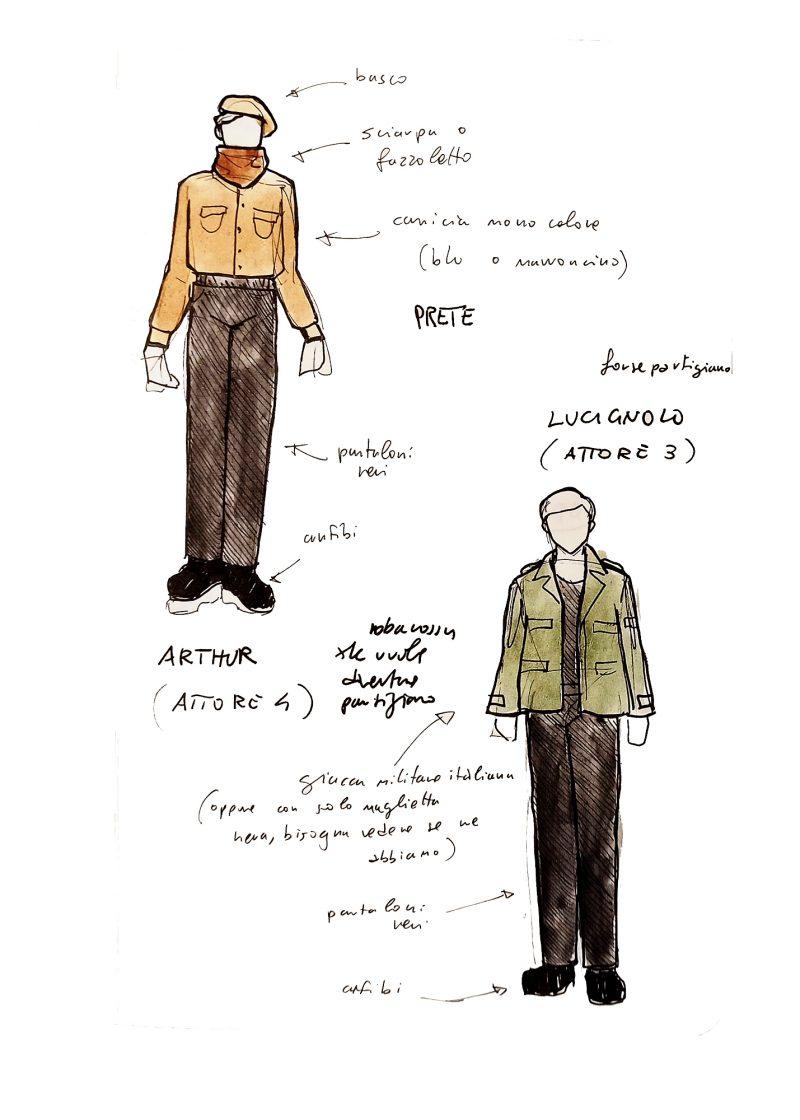 basco
sciarpa o
fazzoletto
camicia mono colore
(blu o marroncino)
PRETE
forse partigiano
LUCIGNOLO
(ATTORE 3)
pantaloni
neri
anfibi
ARTHUR
(ATTORE 4)
roba rossa
xk vuole
diventare
partigiano
giacca militare italiana
(oppure con solo maglietta
nera, bisogna vedere se ne
abbiamo)
pantaloni
neri
anfibi